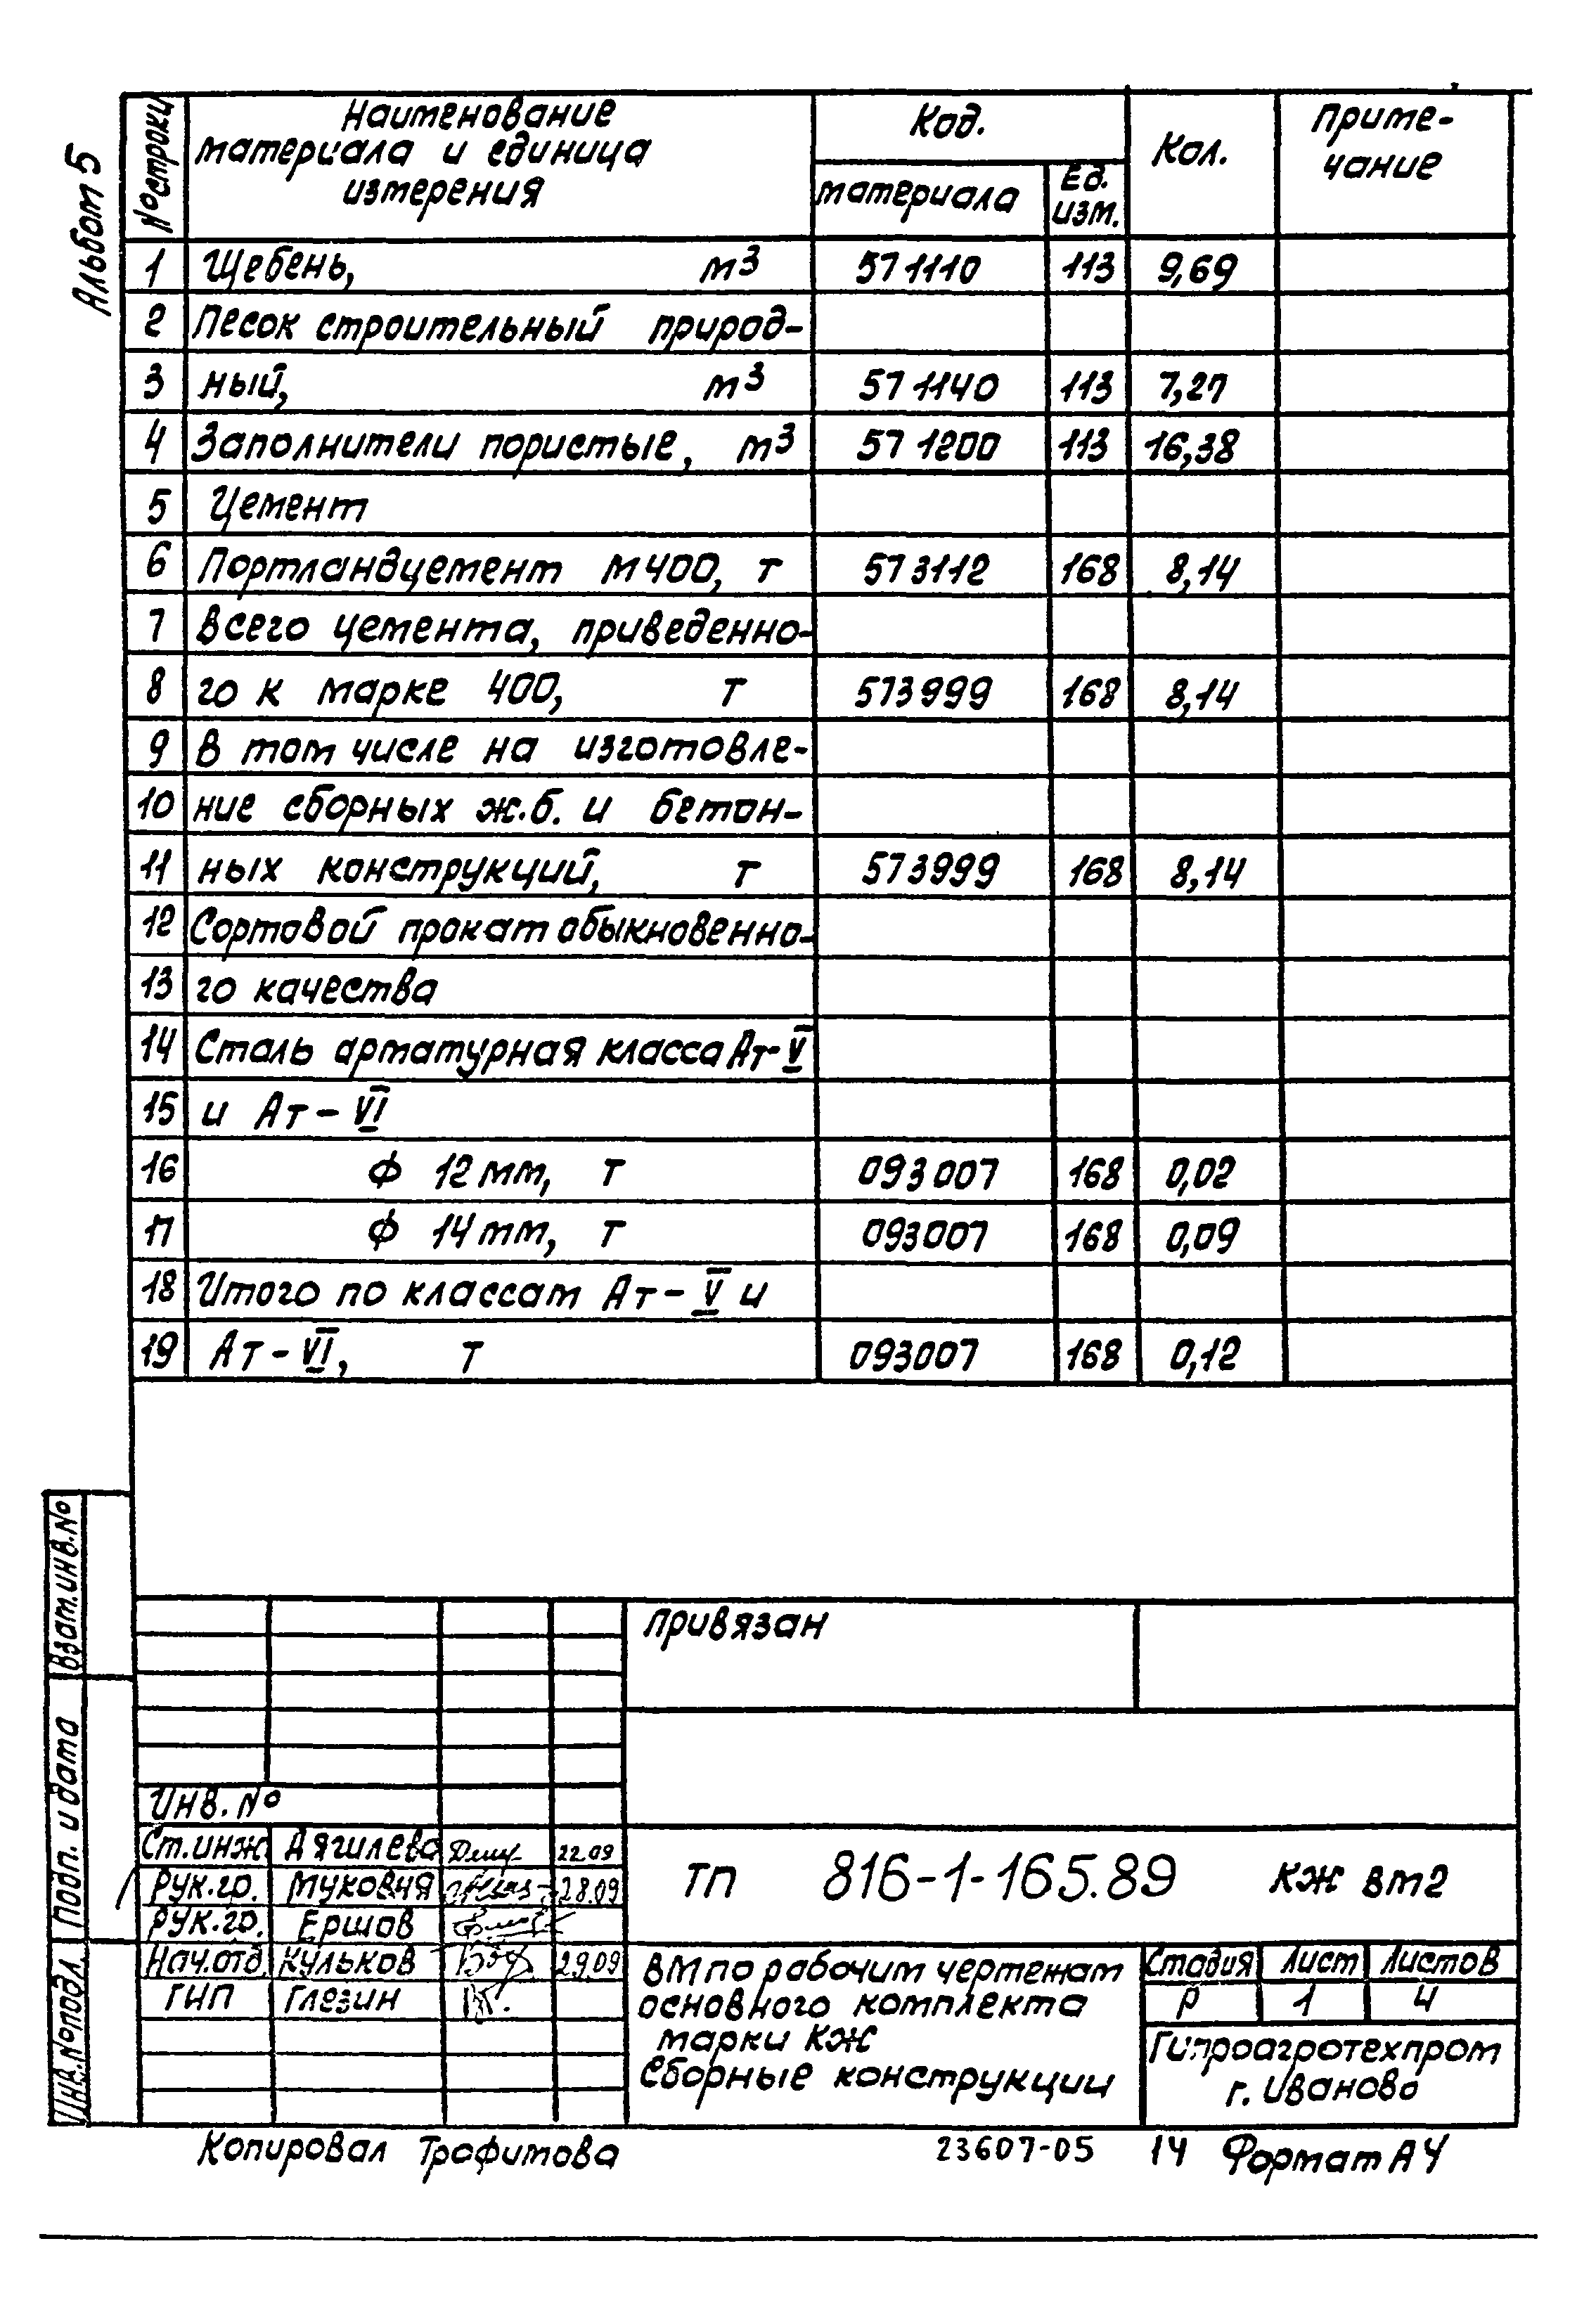 Альбом 5
№ строки
Наименование
материала и единица
измерения
Код.
материала
Ед.
изм.
Кол.
Приме-
чание
1 Щебень, м3 571110 113 9,69
2 Песок строительный природ-
3 ный, м3 571140 113 7,27
4 Заполнители пористые, м3 571200 113 16,38
5 Цемент
6 Портландцемент М400, т 573112 168 8,14
7 Всего цемента, приведенно-
8 го к марке 400, т 573999 168 8,14
9 В том числе на изготовле-
10 ние сборных ж.б. и бетон-
11 ных конструкций, т 573999 168 8,14
12 Сортовой прокат обыкновенно-
13 го качества
14 Сталь арматурная класса Ат-V
15 и Ат-VI
16 ф 12мм, т 093007 168 0,02
17 ф 14мм, т 093007 168 0,09
18 Итого по классам Ат-V и
19 Ат-VI, т 093007 168 0,12
Взам.инв.№
Подп. и дата
Инв.№подл.
Привязан
Инв. №
Ст.инж. Дягилева 22.09
Рук.гр. Муковчя 28.09
Рук.гр. Ершов
Нач.отд. Кульков 29.09
ГИП Глезин
ТП 816-1-165.89 КЖ ВМ2
ВМ по рабочим чертежам
основного комплекта
марки КЖ
Сборные конструкции
Стадия Лист Листов
Р 1 4
Гипроагротехпром
г. Иваново
Копировал Трофимова 23607-05 14 Формат А4